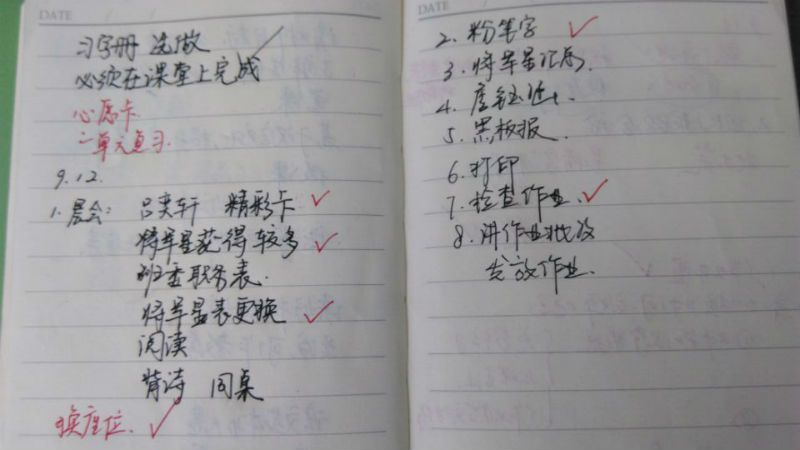 DATE
习字册 选做
必须在课堂上完成
心愿卡
二单元复习
9.12.
1. 晨会: 吕奕轩 精彩卡
将军星获得较多
班委职务表.
将军星表更换
阅读
背诗 同桌
换座位.
DATE
2. 粉笔字
3. 将军星汇总.
4.
5. 黑板报.
6. 打印
7. 检查作业.
8. 讲作业批改
发放作业.